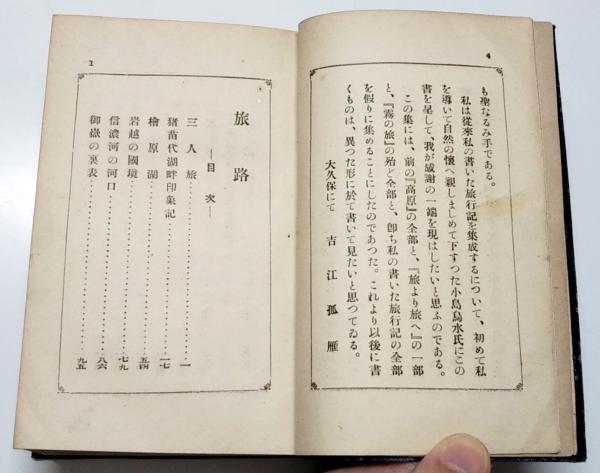 4
も聖なるみ手である。
私は從來私の書いた旅行記を集成するについて、初めて私
を導いて自然の懷へ親しましめて下すつた小島烏水氏にこの
書を呈して、我が感謝の一端を現はしたいと思ふのである。
この集には、前の『高原』の全部と、『旅より旅へ』の一部
と、『霧の旅』の殆ど全部と、卽ち私の書いた旅行記の全部
を假りに集めることにしたのであつた。これより以後に書
くものは、異つた形に於て書いて見たいと思つてゐる。
大久保にて 吉江孤雁
1
旅路
―目次―
三人旅……一
猪苗代湖畔印象記……一七
檜原湖……五四
岩越の國境……七九
信濃河の河口……八六
御嶽の裏表……九五